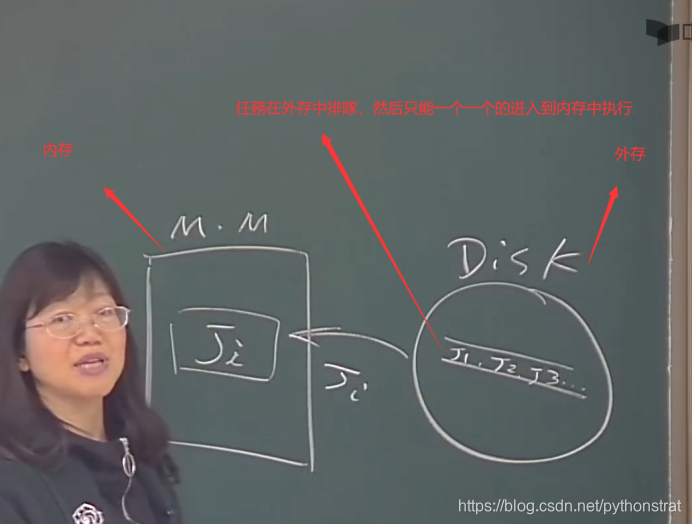 任務在外存中排隊，然后只能一个一个的进入到内存中执行
内存
外存
M.M
Disk
Ji
J1, J2, J3...
Ji
https://blog.csdn.net/pythonstrat